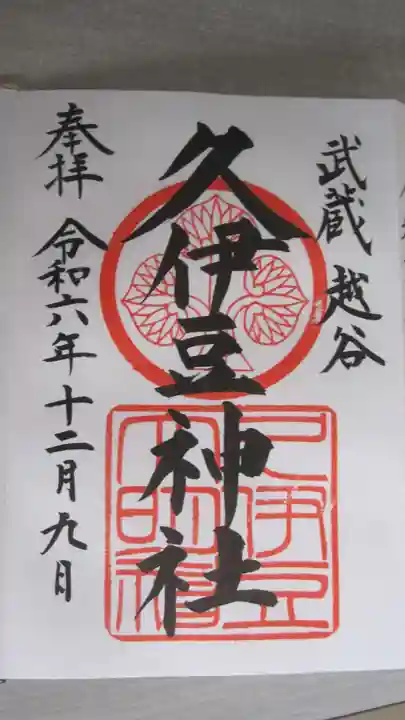 武蔵 越谷
久伊豆神社
奉拝 令和六年十二月九日
久伊豆
大明神